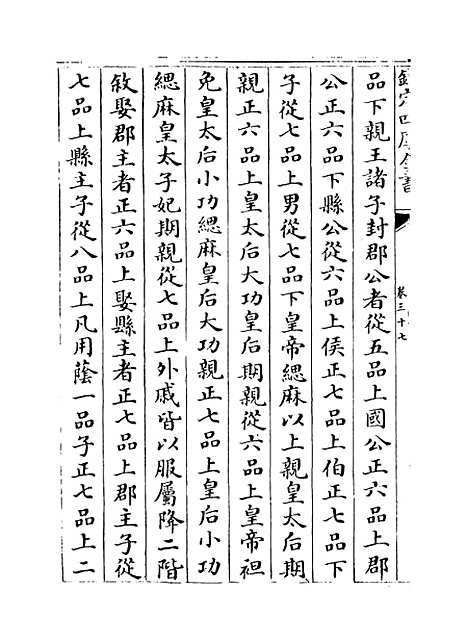 欽定四庫全書
卷三十七
品下親王諸子封郡公者從五品上國公正六品上郡
公正六品下縣公從六品上侯正七品上伯正七品下
子從七品上男從七品下皇帝緦麻以上親皇太后期
親正六品上皇太后大功皇后期親從六品上皇帝袒
免皇太后小功緦麻皇后大功親正七品上皇后小功
緦麻皇太子妃期親從七品上外戚皆以服屬降二階
敘娶郡主者正六品上娶縣主者正七品上郡主子從
七品上縣主子從八品上凡用蔭一品子正七品上二